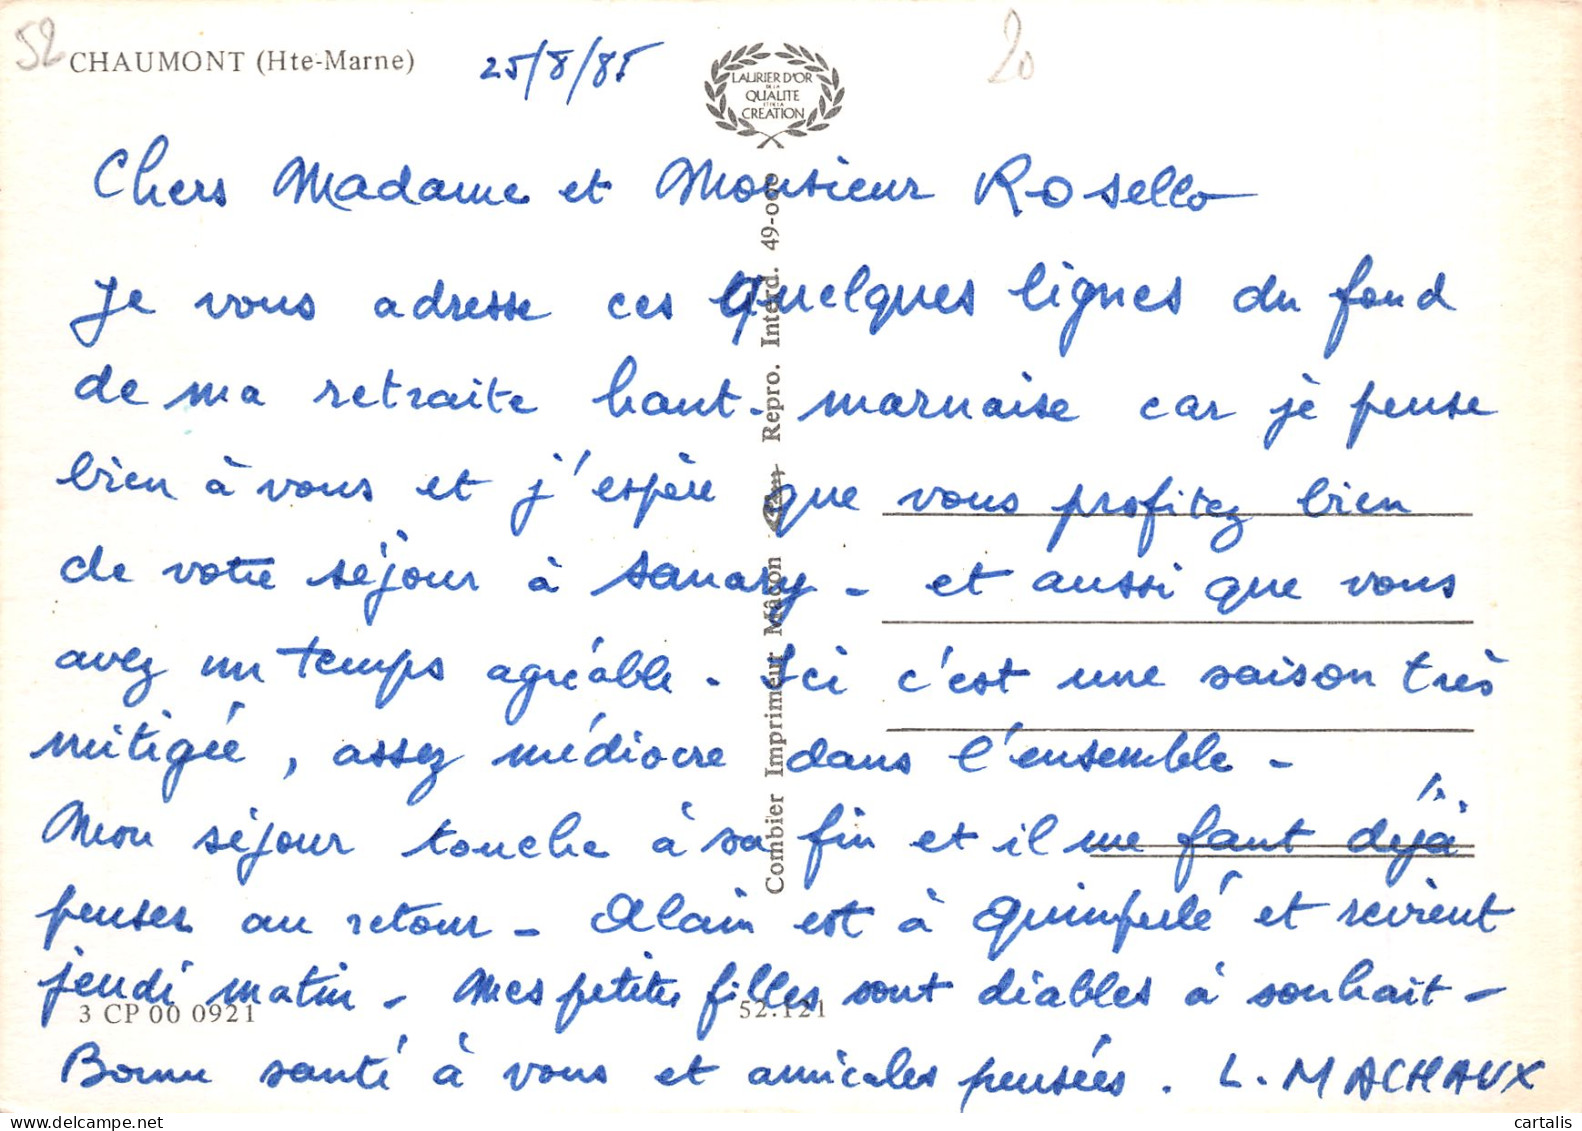 52
CHAUMONT (Hte-Marne)
25/8/85
20
LAURIER D'OR
DE LA
QUALITE
ET DE LA
CREATION
Chers Madame et Monsieur Rosello
Je vous adresse ces quelques lignes du fond
de ma retraite haut-marnaise car je pense
bien à vous et j'espère que vous profitez bien
de votre séjour à Sanary - et aussi que vous
avez un temps agréable. Ici c'est une saison très
mitigée, assez médiocre dans l'ensemble -
Mon séjour touche à sa fin et il me faut déjà
penser au retour - Alain est à Quimperlé et revient
jeudi matin - Mes petites filles sont diables à souhait -
Bonne santé à vous et amicales pensées. L. MACHAUX
Combier Imprimeur Mâcon
Repro. Interd. 49-
3 CP 00 0921
52.121
cartalis